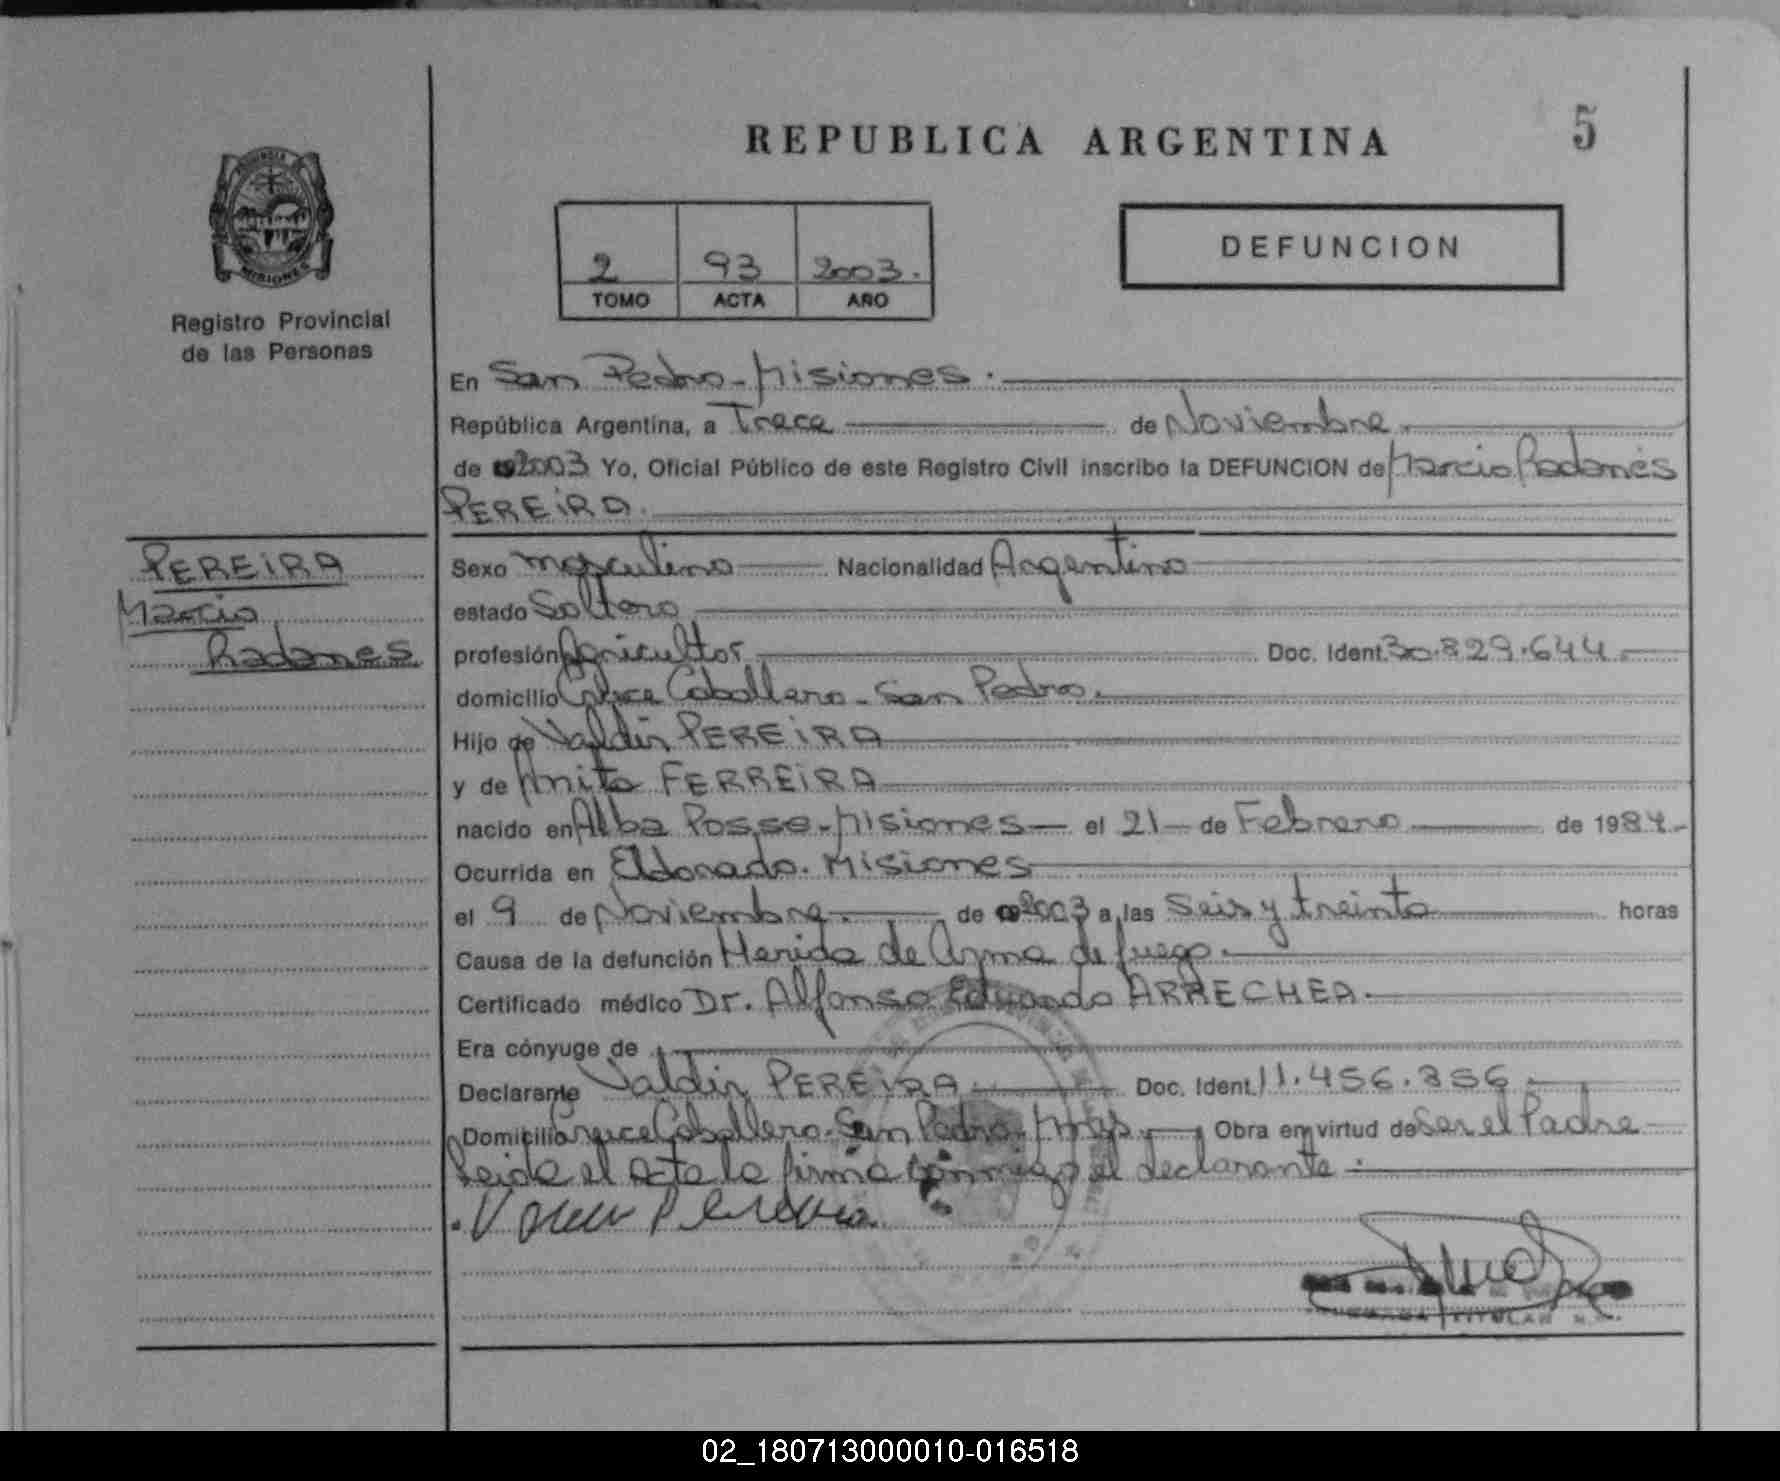 REPUBLICA ARGENTINA
5
PROVINCIA DE MISIONES
Registro Provincial
de las Personas
2 93 2003.
TOMO ACTA AÑO
DEFUNCION
En San Pedro-Misiones.
República Argentina, a Trece de Noviembre.
de 2003 Yo, Oficial Público de este Registro Civil inscribo la DEFUNCION de Marcio Radamés
PEREIRA.
PEREIRA
Marcio
Radames
Sexo masculino Nacionalidad Argentino
estado Soltero
profesión Agricultor Doc. Ident. 30.829.644.
domicilio Cruce Caballero-San Pedro.
Hijo de Valdir PEREIRA
y de Anita FERREIRA
nacido en Alba Posse-Misiones el 21 de Febrero de 1984.-
Ocurrida en Eldorado. Misiones
el 9 de Noviembre. de 2003 a las Seis y treinta horas
Causa de la defunción Herida de Arma de fuego.
Certificado médico Dr. Alfonso Eduardo ARRECHEA.
Era cónyuge de
Declarante Valdir PEREIRA Doc. Ident. 11.456.356.
Domicilio Cruce Caballero-San Pedro- Obra en virtud de Ser el Padre
Leida el acta la firma conmigo el declarante.
Pereira
TITULAR
02_180713000010-016518